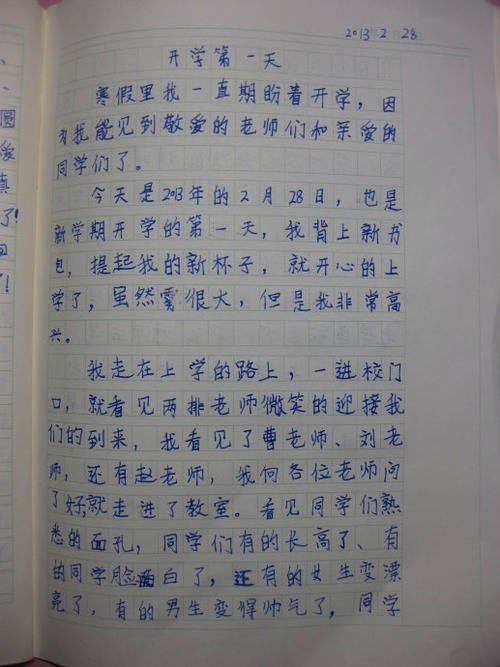 2013 2 28
开学第一天
寒假里我一直期盼着开学，因
为我能见到敬爱的老师们和亲爱的
同学们了。
今天是2013年的2月28日，也是
新学期开学的第一天，我背上新书
包，提起我的新杯子，就开心的上
学了，虽然雾很大，但是我非常高
兴。
我走在上学的路上，一进校门
口，就看见两排老师微笑的迎接我
们的到来，我看见了曹老师、刘老
师，还有赵老师，我向各位老师问
了好就走进了教室。看见同学们熟
悉的面孔，同学们有的长高了、有
的同学脸面白了，还有的女生变漂
亮了，有的男生变得帅气了，同学
圆
真
了！
！